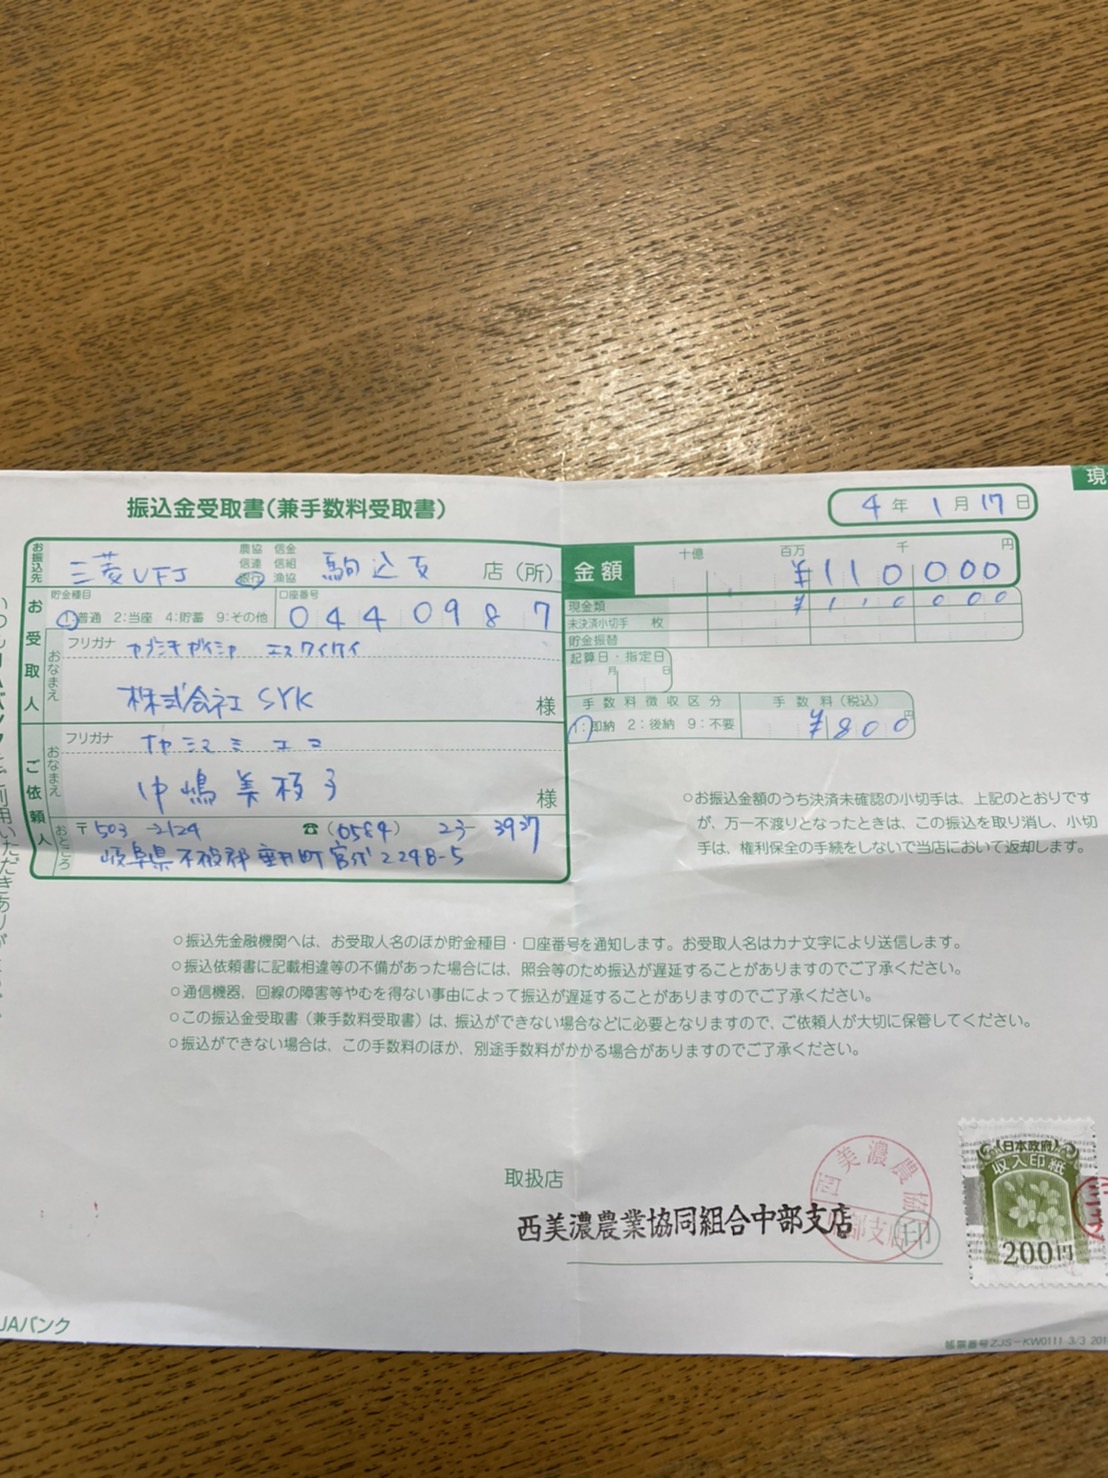 現
振込金受取書(兼手数料受取書)
4年1月17日
お振込先
三菱UFJ
農協 信金
信連 信組
銀行 漁協
駒込支
店(所)
金額
十億 百万 千 円
¥110000
貯金種目
①普通 2:当座 4:貯蓄 9:その他
口座番号
0440987
現金類
¥110000
未決済小切手 枚
貯金振替
お受取人
おなまえ
フリガナ
カブシキガイシャ エスワイケイ
株式会社 SYK
様
起算日・指定日
月 日
手数料徴収区分
手数料(税込)
①:即納 2:後納 9:不要
¥800円
ご依頼人
おなまえ
フリガナ
ナカシマ ミエコ
中嶋美枝子
様
おところ
〒503-2124
☎(0584) 23-3937
岐阜県不破郡垂井町宮代2248-5
○お振込金額のうち決済未確認の小切手は、上記のとおりです
が、万一不渡りとなったときは、この振込を取り消し、小切
手は、権利保全の手続をしないで当店において返却します。
○振込先金融機関へは、お受取人名のほか貯金種目・口座番号を通知します。お受取人名はカナ文字により送信します。
○振込依頼書に記載相違等の不備があった場合には、照会等のため振込が遅延することがありますのでご了承ください。
○通信機器、回線の障害等やむを得ない事由によって振込が遅延することがありますのでご了承ください。
○この振込金受取書(兼手数料受取書)は、振込ができない場合などに必要となりますので、ご依頼人が大切に保管してください。
○振込ができない場合は、この手数料のほか、別途手数料がかかる場合がありますのでご了承ください。
取扱店
西美濃農業協同組合中部支店
西美濃農協
中部支店
印
日本政府
収入印紙
200円
JAバンク
帳票番号ZJS-KW0111 3/3 201